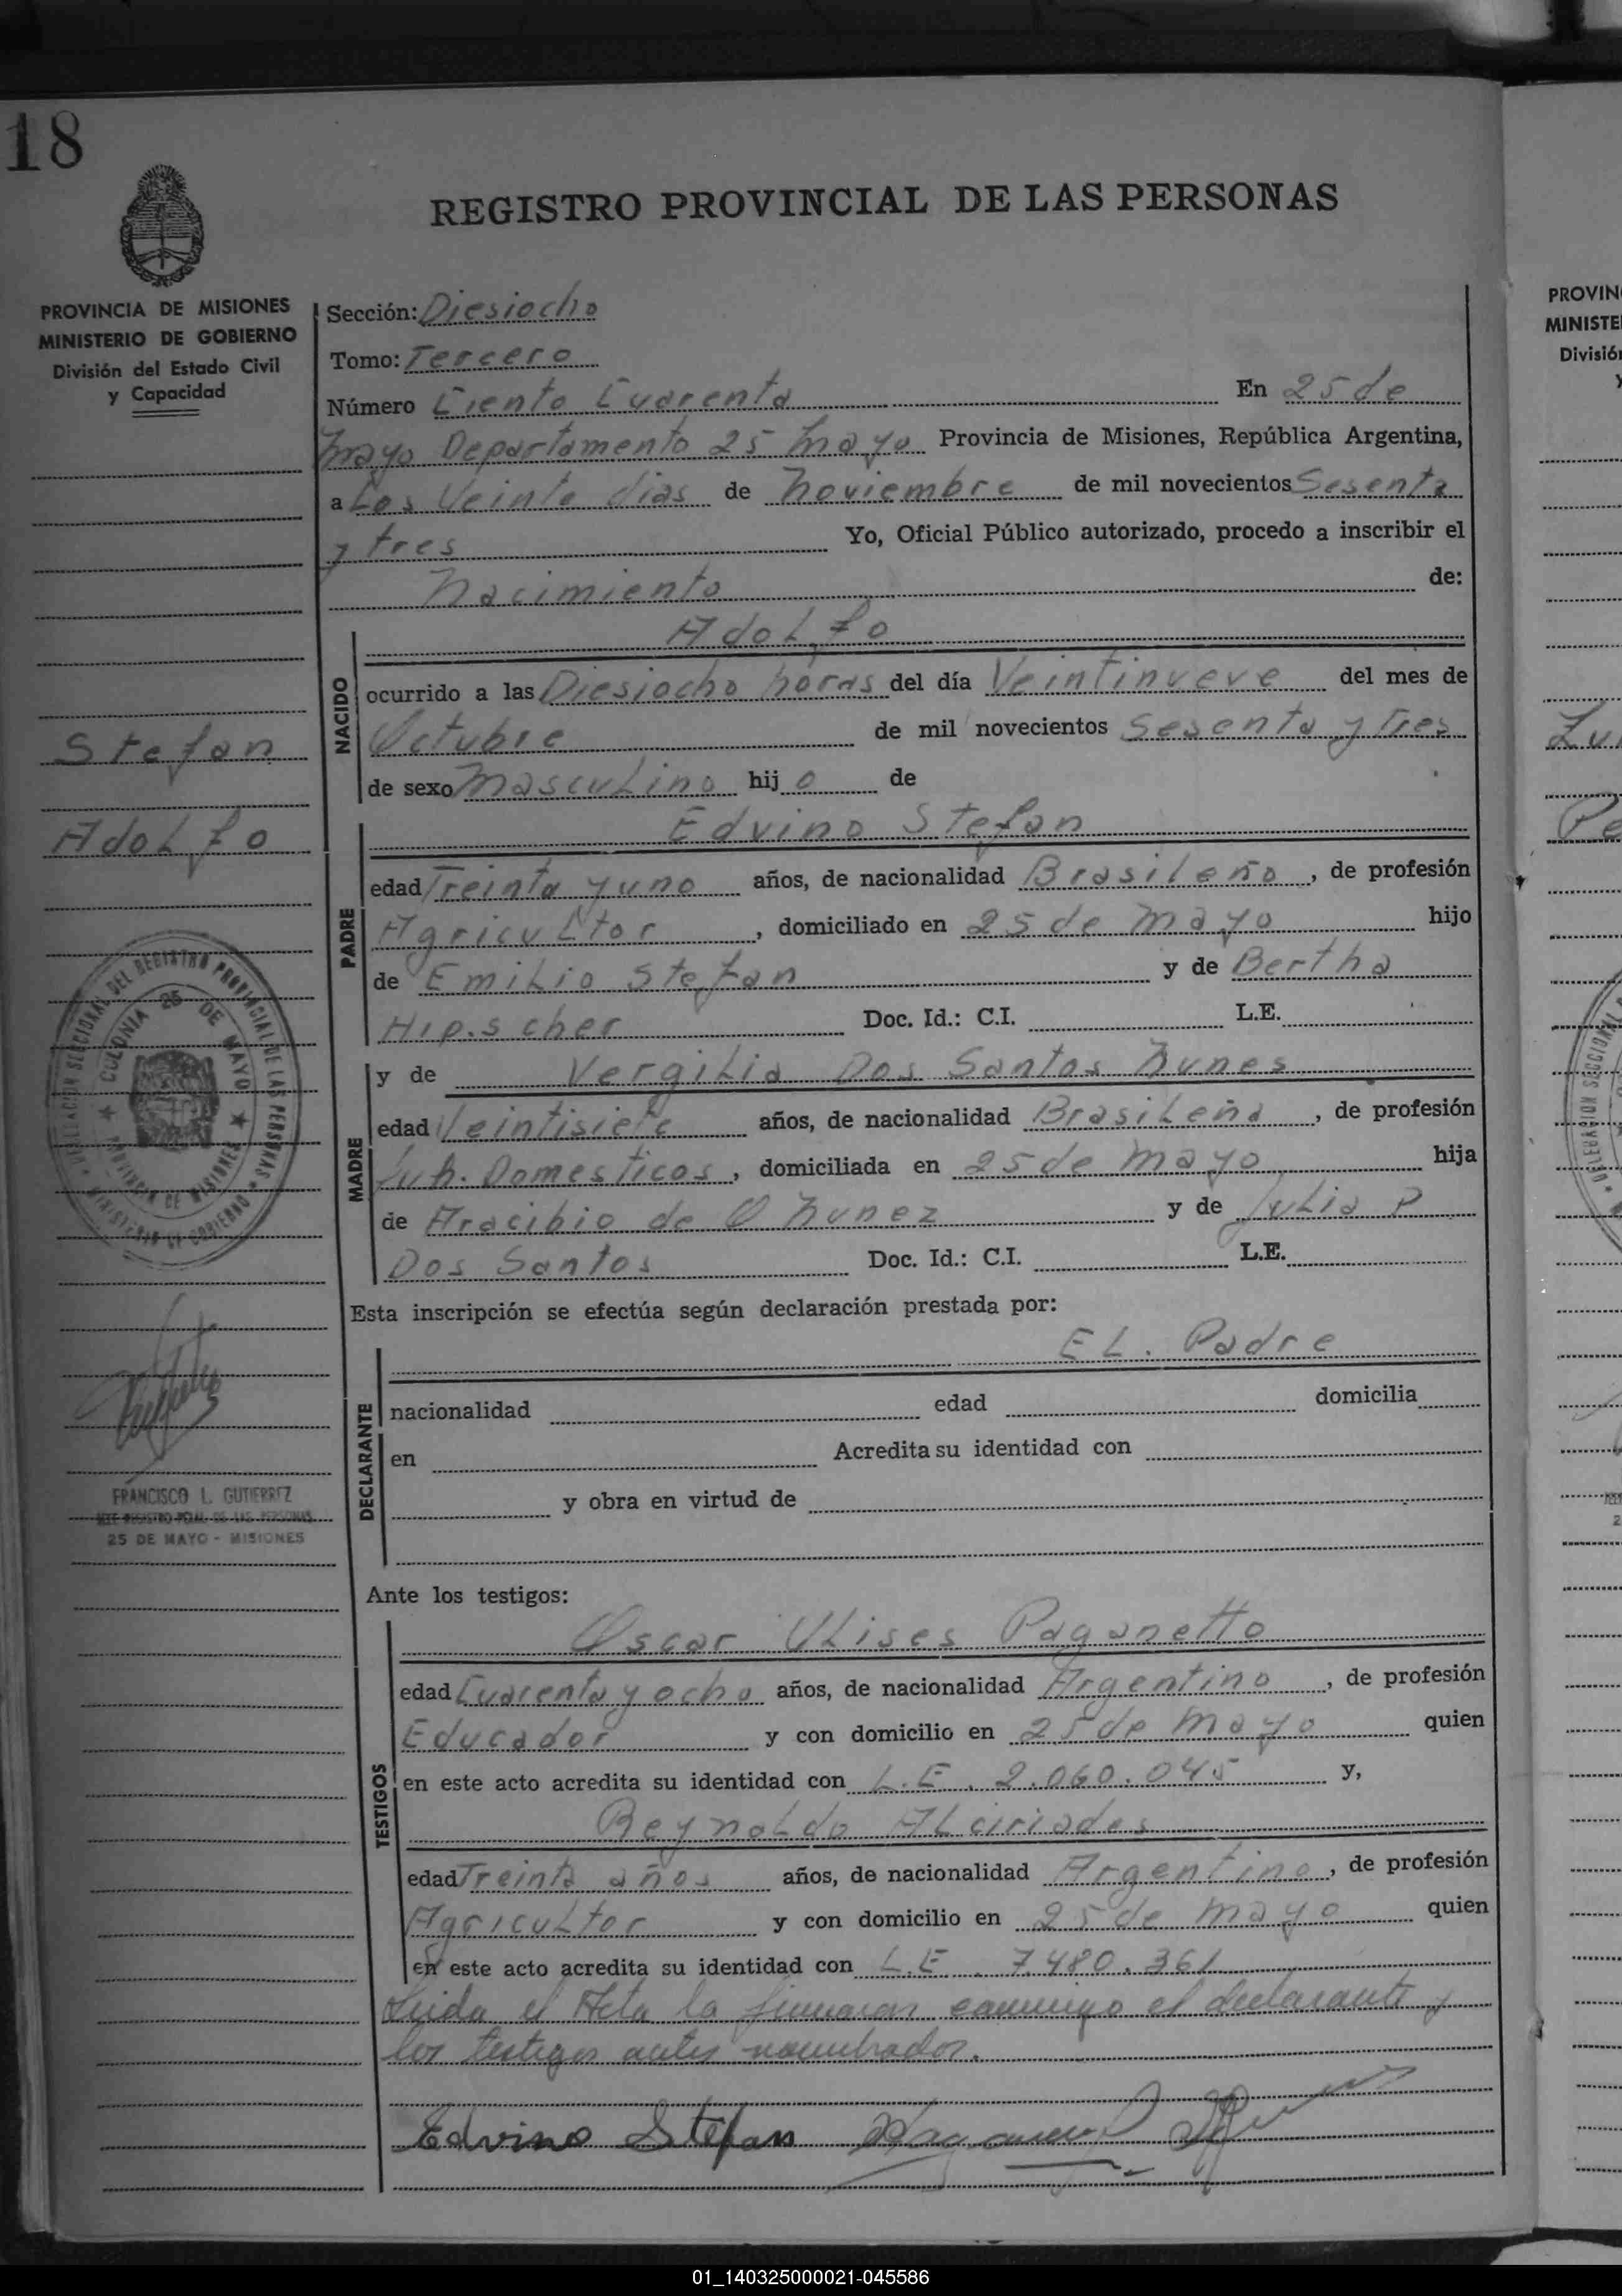 18
REGISTRO PROVINCIAL DE LAS PERSONAS
PROVINCIA DE MISIONES
MINISTERIO DE GOBIERNO
División del Estado Civil
y Capacidad
Sección: Diesiocho
Tomo: Tercero
Número Ciento Cuarenta En 25 de
mayo Departamento 25 mayo Provincia de Misiones, República Argentina,
a Los Veinte dias de Noviembre de mil novecientos Sesenta
y tres Yo, Oficial Público autorizado, procedo a inscribir el
Nacimiento de:
Adolfo
NACIDO
ocurrido a las Diesiocho horas del día Veintinueve del mes de
Octubre de mil novecientos Sesenta y Tres
de sexo Masculino hijo de
Stefan
Adolfo
PADRE
Edvino Stefan
edad Treinta y uno años, de nacionalidad Brasileño, de profesión
Agricultor, domiciliado en 25 de mayo hijo
de Emilio Stefan y de Bertha
Hipscher Doc. Id.: C.I. L.E.
MADRE
y de Vergilia Dos Santos Nunes
edad Veintisiete años, de nacionalidad Brasileña, de profesión
Domesticos, domiciliada en 25 de mayo hija
de Aracibio de O Nunez y de Julia P
Dos Santos Doc. Id.: C.I. L.E.
COLONIA 25 DE MAYO
PROVINCIA DE MISIONES
DELEGACION SECCIONAL DEL REGISTRO PROVINCIAL DE LAS PERSONAS
MINISTERIO DE GOBIERNO
Esta inscripción se efectúa según declaración prestada por:
DECLARANTE
EL. Padre
nacionalidad edad domicilia
en Acredita su identidad con
y obra en virtud de
FRANCISCO L. GUTIERREZ
25 DE MAYO - MISIONES
Ante los testigos:
TESTIGOS
Oscar Ulises Paganetto
edad Cuarenta y ocho años, de nacionalidad Argentino, de profesión
Educador y con domicilio en 25 de mayo quien
en este acto acredita su identidad con L.E. 2.060.045 y,
Reynaldo Alciriades
edad Treinta años años, de nacionalidad Argentino, de profesión
Agricultor y con domicilio en 25 de mayo quien
en este acto acredita su identidad con L.E. 7.480.361
Leida el Acta la firmaron conmigo el declarante y
los testigos antes nombrados.
Edvino Stefan
PROVIN
MINISTE
Divisió
01_140325000021-045586